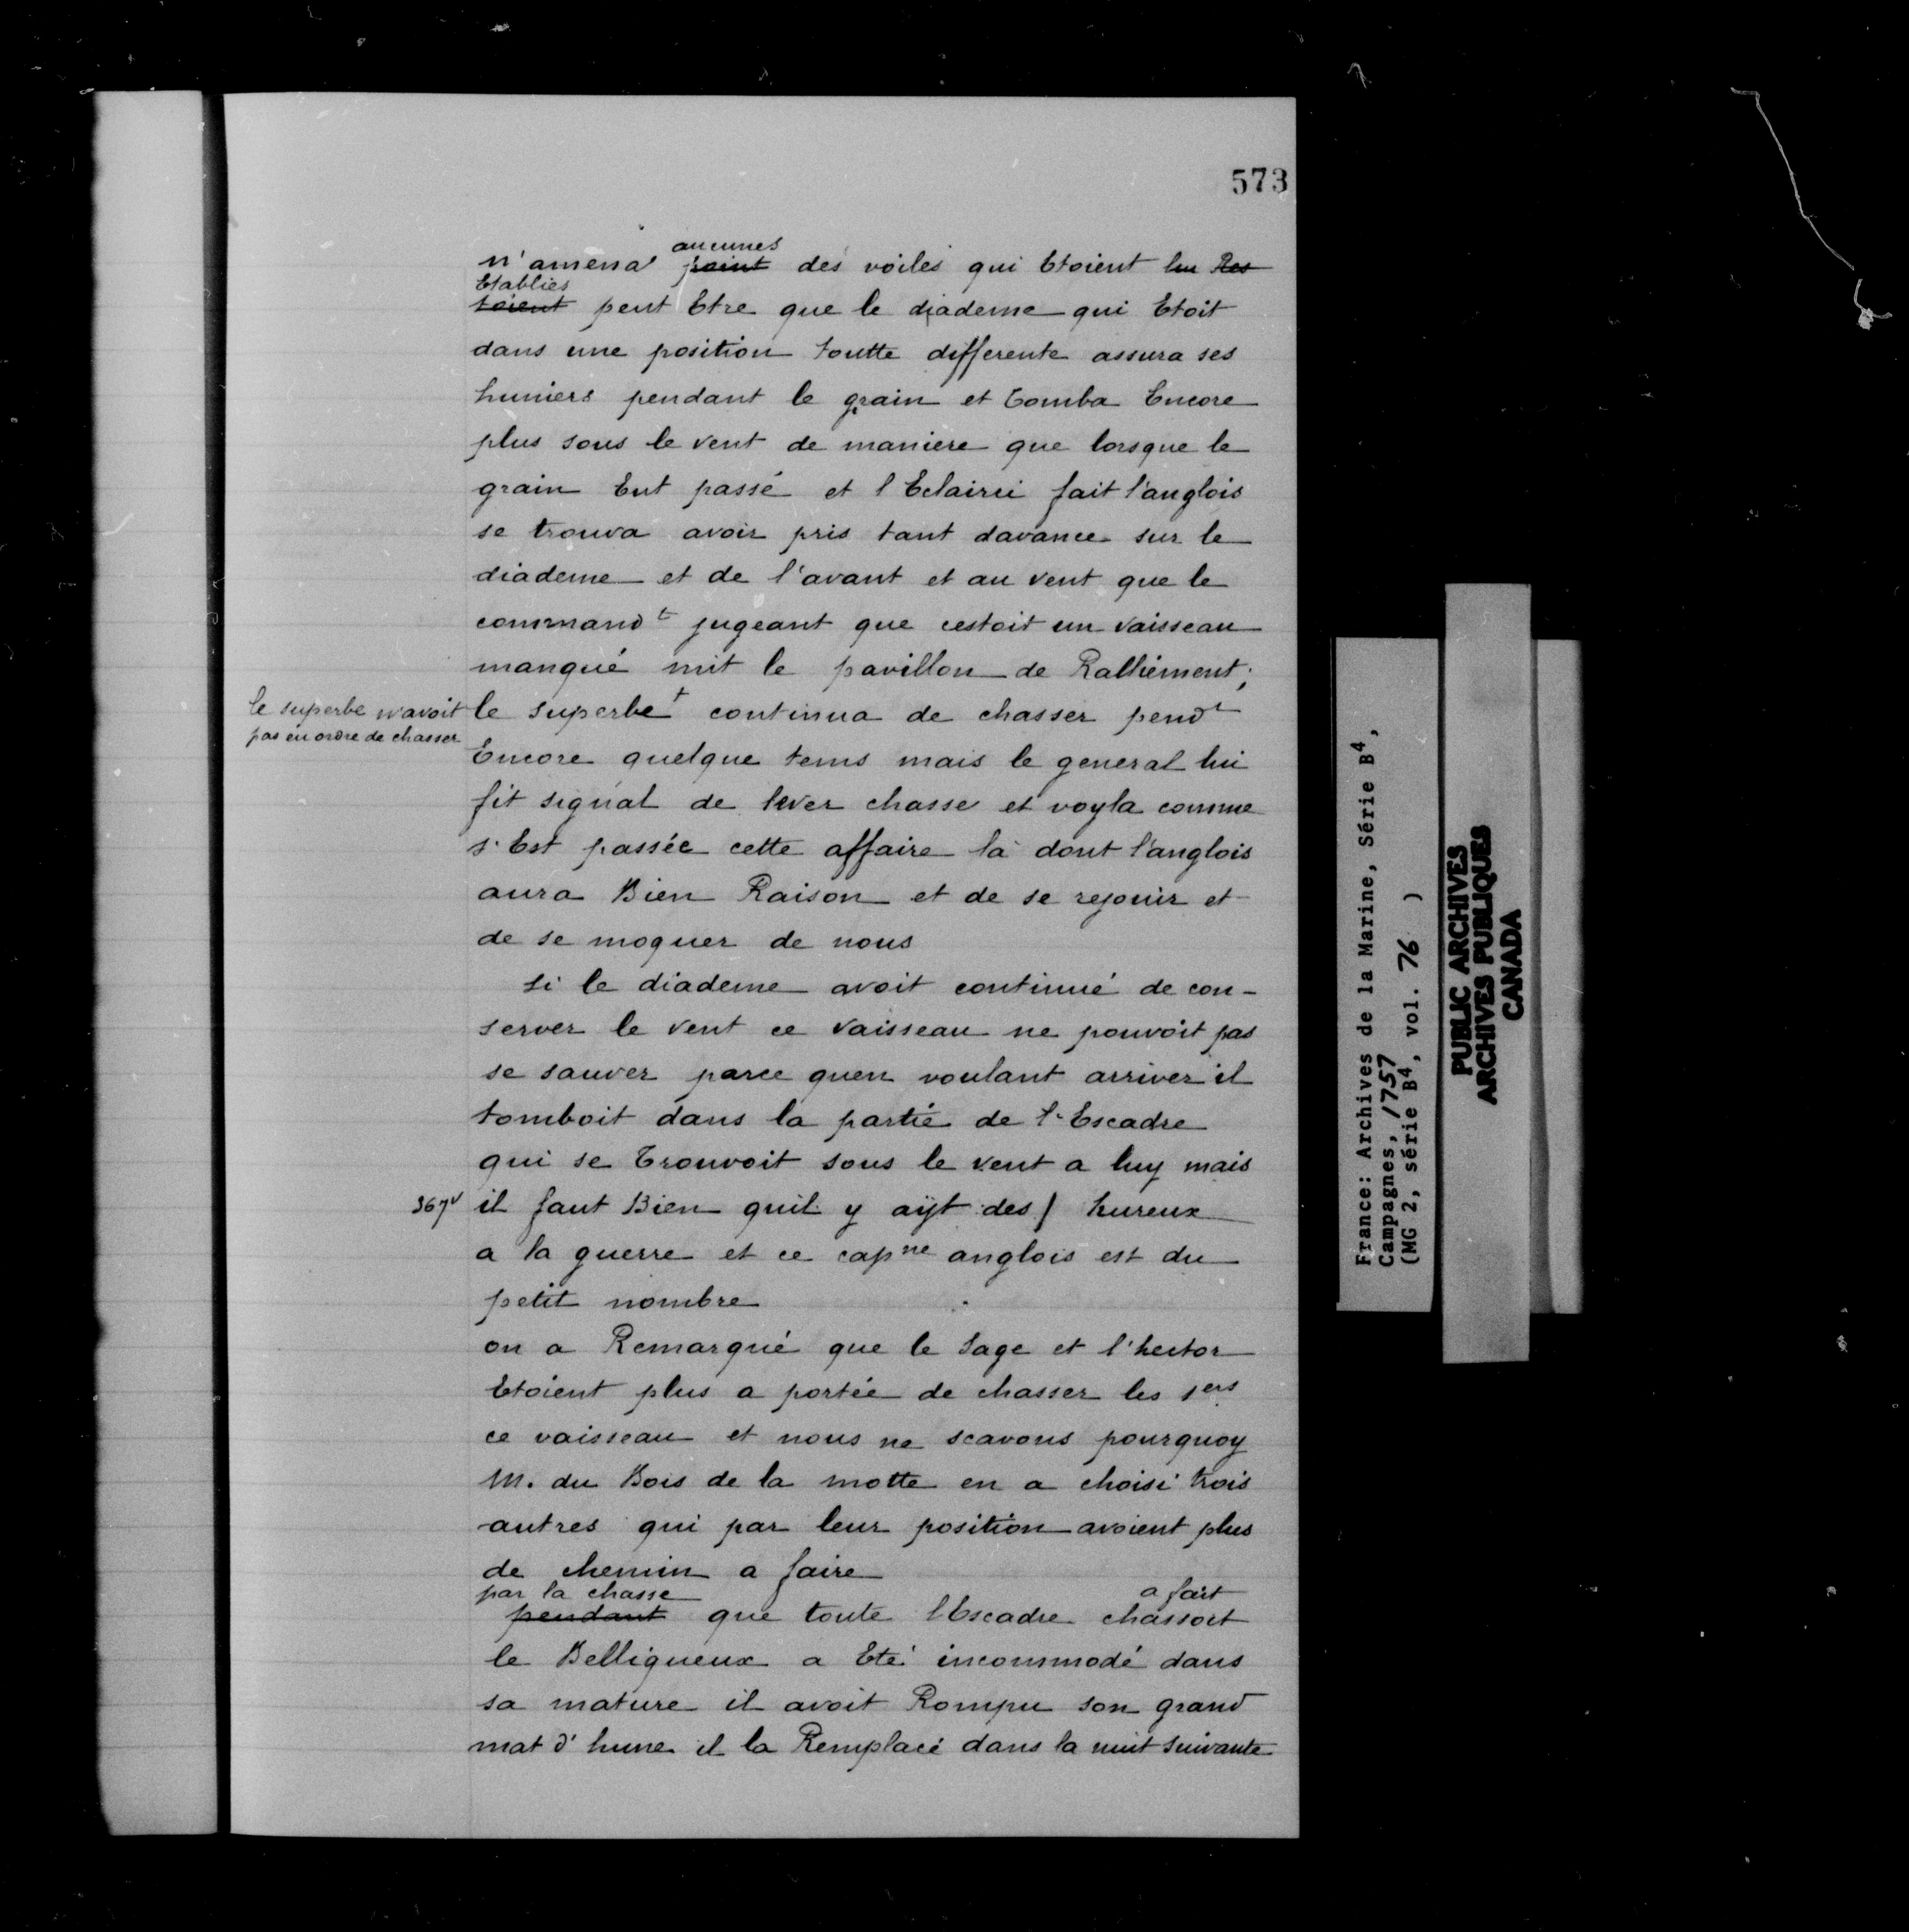 573
n'amena aucunes
point des voiles qui Etoient lui Res
Etablies
toient peut Etre que le diademe qui Etoit
dans une position toutte differente assura ses
huniers pendant le grain et tomba Encore
plus sous le vent de maniere que lorsque le
grain Eut passé et l Eclairci fait l'anglois
se trouva avoir pris tant davance sur le
diademe et de l'avant et au vent que le
command t jugeant que cestoit un vaisseau
manqué mit le pavillon de Ralliement;
le superbe n'avoit
pas eu ordre de chasser
le superbe + continua de chasser pend t
Encore quelque tems mais le general lui
fit signal de lever chasse et voyla comme
s'Est passée cette affaire la dont l'anglois
aura Bien Raison et de se rejouir et
de se moquer de nous
si le diademe avoit continué de con-
server le vent ce vaisseau ne pouvoit pas
se sauver parce quen voulant arriver il
tomboit dans la partie de l'Escadre
qui se trouvoit sous le vent a luy mais
367v il faut Bien quil y aÿt des / hureux
a la guerre et ce capne anglois est du
petit nombre
on a Remarqué que le Sage et l'hector
Etoient plus a portée de chasser les 1ers
ce vaisseau et nous ne scavons pourquoy
M. du Bois de la motte en a choisi trois
autres qui par leur position avoient plus
de chemin a faire
par la chasse a fait
pendant que toute lEscadre chassoit
le Belliqueux a Eté incommodé dans
sa mature il avoit Rompu son grand
mat d'hune il la Remplacé dans la nuit suivante
France: Archives de la Marine, Série B4,
Campagnes, 1757
(MG 2, série B4, vol. 76 )
PUBLIC ARCHIVES
ARCHIVES PUBLIQUES
CANADA